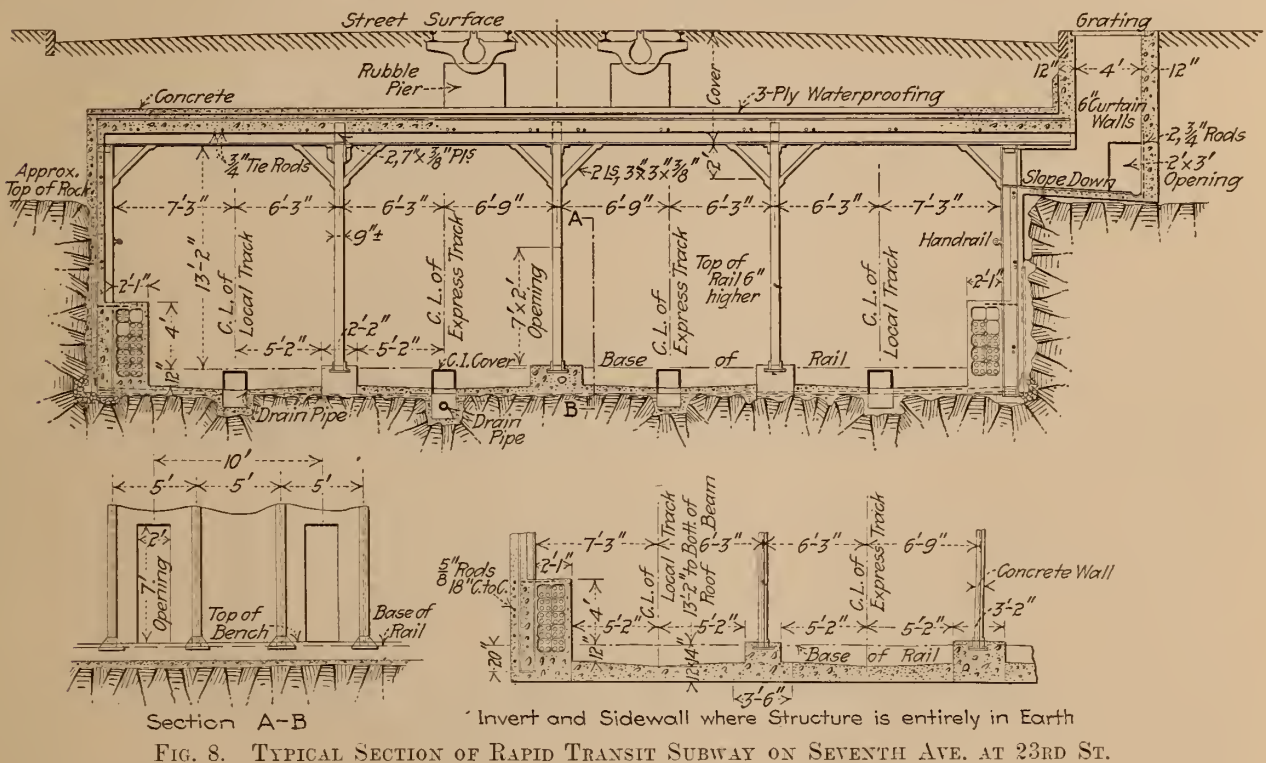 Street Surface
Grating
Rubble
Pier
Cover
12" 4' 12"
Concrete
3-Ply Waterproofing
6" Curtain
Walls
2, 3/4" Rods
2' x 3'
Opening
3/4" Tie Rods
2, 7" x 3/8" Pls
2 Ls, 3" x 3" x 3/8"
2'
Slope Down
Approx.
Top of Rock
7'-3" 6'-3" 6'-3" 6'-9" 6'-9" 6'-3" 6'-3" 7'-3"
A
9"±
Handrail
13'-2"
C.L. of
Local Track
C.L. of
Express Track
7' x 2'
Opening
C.L. of
Express Track
Top of
Rail 6"
higher
C.L. of
Local Track
2'-1"
2'-1"
4'
12"
2'-2"
5'-2" 5'-2"
C.I. Cover
Base of Rail
Drain Pipe
Drain
Pipe
B
10'
5' 5' 5'
2'
7'
Opening
Top of
Bench
Base of
Rail
Section A-B
7'-3" 6'-3" 6'-3" 6'-9"
2'-1"
5/8" Rods
18" C. to C.
C.L. of
Local Track
13'-2" to Bott. of
Roof Beam
C.L. of
Express Track
Concrete Wall
3'-2"
4'
5'-2" 5'-2" 5'-2" 5'-2"
20"
12"
12" 14"
Base of Rail
3'-6"
Invert and Sidewall where Structure is entirely in Earth
FIG. 8. TYPICAL SECTION OF RAPID TRANSIT SUBWAY ON SEVENTH AVE. AT 23RD ST.